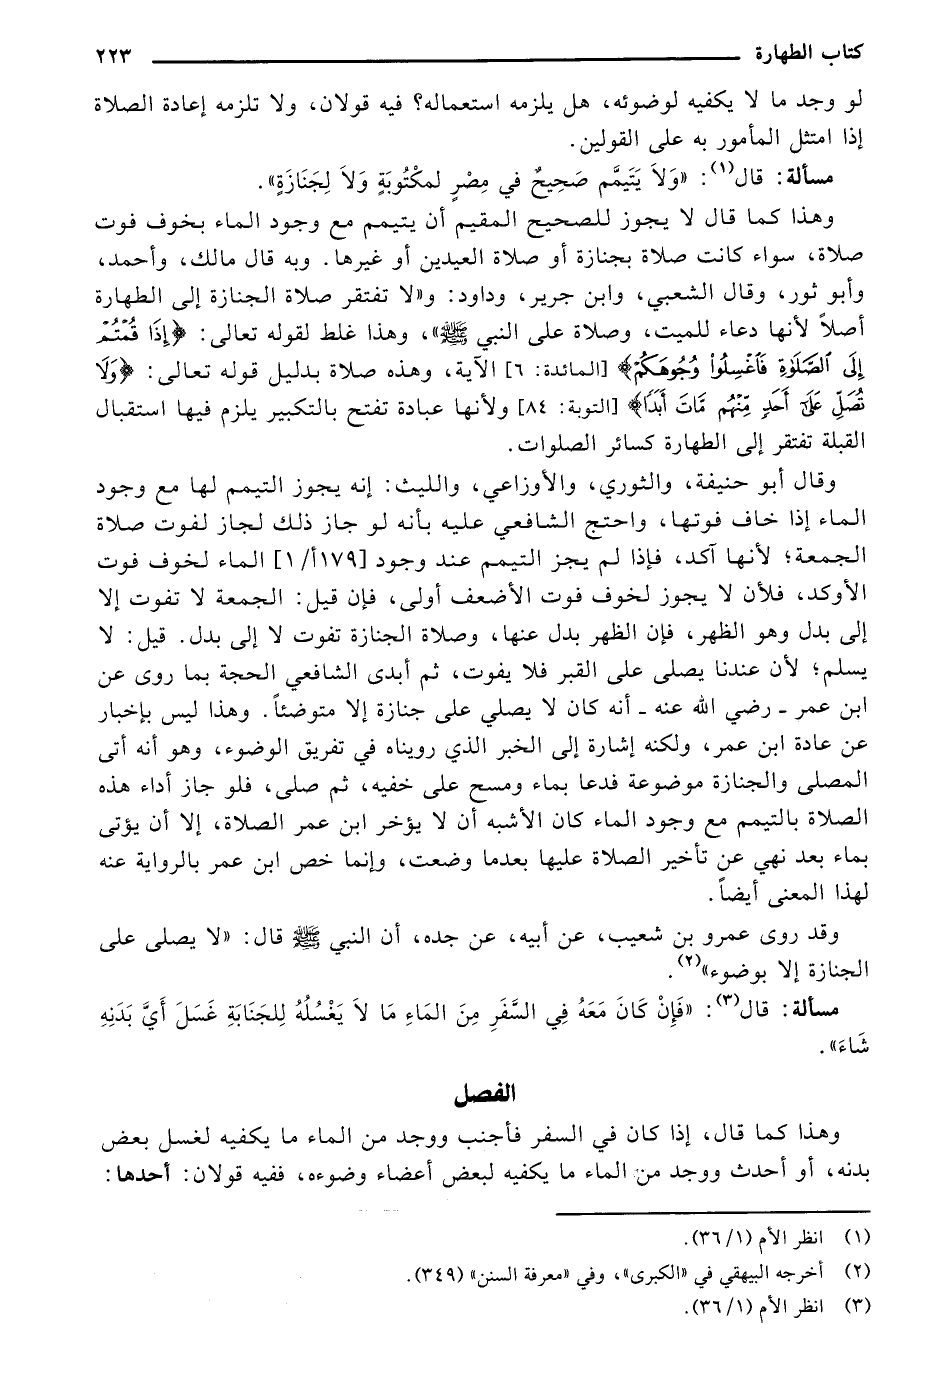 كتاب الطهارة ٢٢٣
لو وجد ما لا يكفيه لوضوئه، هل يلزمه استعماله؟ فيه قولان، ولا تلزمه إعادة الصلاة
إذا امتثل المأمور به على القولين.
مسألة: قال(١): «وَلاَ يَتَيمَّم صَحِيحٌ في مِصْرٍ لمكْتُوبَةٍ وَلاَ لِجَنَازَةٍ».
وهذا كما قال لا يجوز للصحيح المقيم أن يتيمم مع وجود الماء بخوف فوت
صلاة، سواء كانت صلاة بجنازة أو صلاة العيدين أو غيرها. وبه قال مالك، وأحمد،
وأبو ثور، وقال الشعبي، وابن جرير، وداود: و«لا تفتقر صلاة الجنازة إلى الطهارة
أصلاً لأنها دعاء للميت، وصلاة على النبي ﷺ»، وهذا غلط لقوله تعالى: ﴿إِذَا قُمْتُمْ
إِلَى ٱلصَّلَوٰةِ فَٱغْسِلُوا۟ وُجُوهَكُمْ﴾ [المائدة: ٦] الآية، وهذه صلاة بدليل قوله تعالى: ﴿وَلَا
تُصَلِّ عَلَىٰٓ أَحَدٍ مِّنْهُم مَّاتَ أَبَدًا﴾ [التوبة: ٨٤] ولأنها عبادة تفتح بالتكبير يلزم فيها استقبال
القبلة تفتقر إلى الطهارة كسائر الصلوات.
وقال أبو حنيفة، والثوري، والأوزاعي، والليث: إنه يجوز التيمم لها مع وجود
الماء إذا خاف فوتها، واحتج الشافعي عليه بأنه لو جاز ذلك لجاز لفوت صلاة
الجمعة؛ لأنها آكد، فإذا لم يجز التيمم عند وجود [١٧٩أ/ ١] الماء لخوف فوت
الأوكد، فلأن لا يجوز لخوف فوت الأضعف أولى، فإن قيل: الجمعة لا تفوت إلا
إلى بدل وهو الظهر، فإن الظهر بدل عنها، وصلاة الجنازة تفوت لا إلى بدل. قيل: لا
يسلم؛ لأن عندنا يصلى على القبر فلا يفوت، ثم أبدى الشافعي الحجة بما روى عن
ابن عمر ـ رضي الله عنه ـ أنه كان لا يصلي على جنازة إلا متوضئاً. وهذا ليس بإخبار
عن عادة ابن عمر، ولكنه إشارة إلى الخبر الذي رويناه في تفريق الوضوء، وهو أنه أتى
المصلى والجنازة موضوعة فدعا بماء ومسح على خفيه، ثم صلى، فلو جاز أداء هذه
الصلاة بالتيمم مع وجود الماء كان الأشبه أن لا يؤخر ابن عمر الصلاة، إلا أن يؤتى
بماء بعد نهي عن تأخير الصلاة عليها بعدما وضعت، وإنما خص ابن عمر بالرواية عنه
لهذا المعنى أيضاً.
وقد روى عمرو بن شعيب، عن أبيه، عن جده، أن النبي ﷺ قال: «لا يصلى على
الجنازة إلا بوضوء»(٢).
مسألة: قال(٣): «فَإِنْ كَانَ مَعَهُ فِي السَّفَرِ مِنَ المَاءِ مَا لاَ يَغْسُلُهُ لِلجَنَابَةِ غَسَلَ أَيَّ بَدَنِهِ
شَاءَ».
الفصل
وهذا كما قال، إذا كان في السفر فأجنب ووجد من الماء ما يكفيه لغسل بعض
بدنه، أو أحدث ووجد من الماء ما يكفيه لبعض أعضاء وضوءه، ففيه قولان: أحدها:
(١) انظر الأم (١/ ٣٦).
(٢) أخرجه البيهقي في «الكبرى»، وفي «معرفة السنن» (٣٤٩).
(٣) انظر الأم (١/ ٣٦).